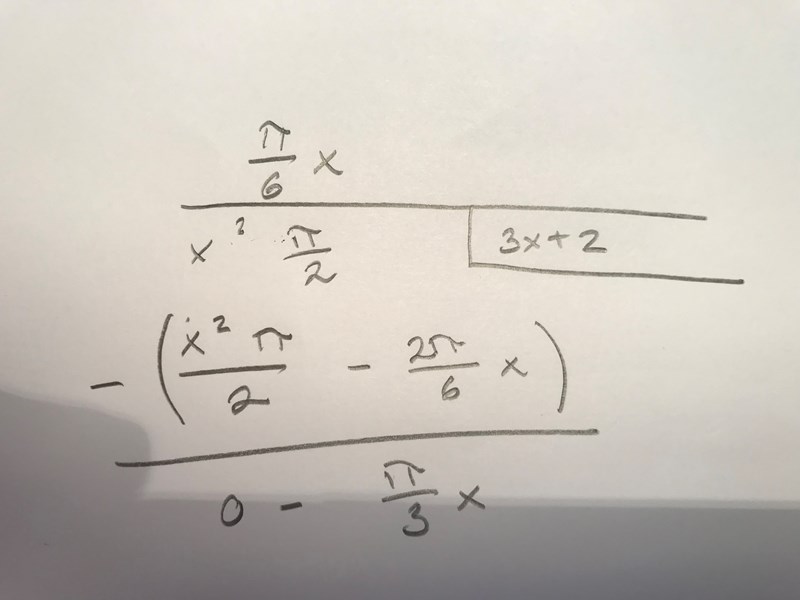 π/6 x
x² π/2 3x+2
- (x² π/2 - 2π/6 x)
0 - π/3 x